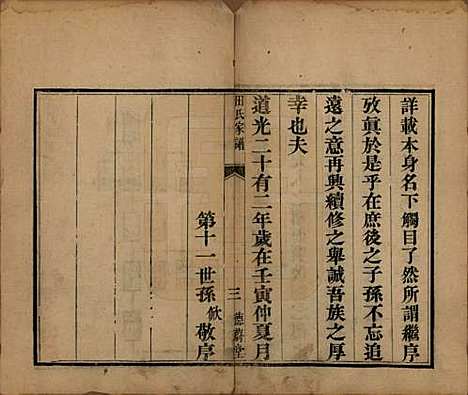 詳載本身名下觸目了然所謂繼序
攷眞於是乎在庶後之子孫不忘追
遠之意再興續修之舉誠吾族之厚
幸也夫
道光二十有二年歲在壬寅仲夏月
田氏家譜
三
德蔚堂
第十一世孫 攸 敬序